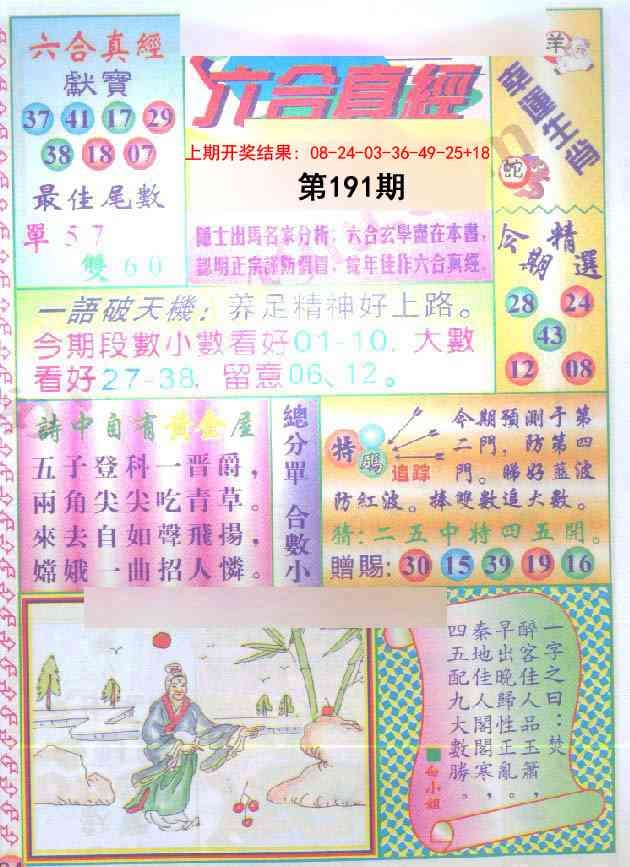 六合真經
獻寶
37 41 17 29
38 18 07
最佳尾數
單 5 7
雙 6 0
六合真經
上期开奖结果: 08-24-03-36-49-25+18
第191期
隱士出馬名家分析，六合玄學盡在本書，
認明正宗謹防假冒，蛇年佳作六合真經。
羊
幸運生肖
蛇
今期精選
28 24
43
12 08
一語破天機：养足精神好上路。
今期段數小數看好01-10，大數
看好27-38，留意06、12。
詩中自有黃金屋
五子登科一晋爵，
兩角尖尖吃青草。
來去自如聲飛揚，
嫦娥一曲招人憐。
總分單 合數小
特碼
追踪
今期預測于第
二門，防第四
門。睇好藍波
防紅波。棒雙數追大數。
猜:二五中特四五開。
贈賜: 30 15 39 19 16
一字之曰：焚
醉客佳人品玉簫，
早出晚歸性正亂，
秦地佳人閣閣寒。
四五配九大數勝
白小姐